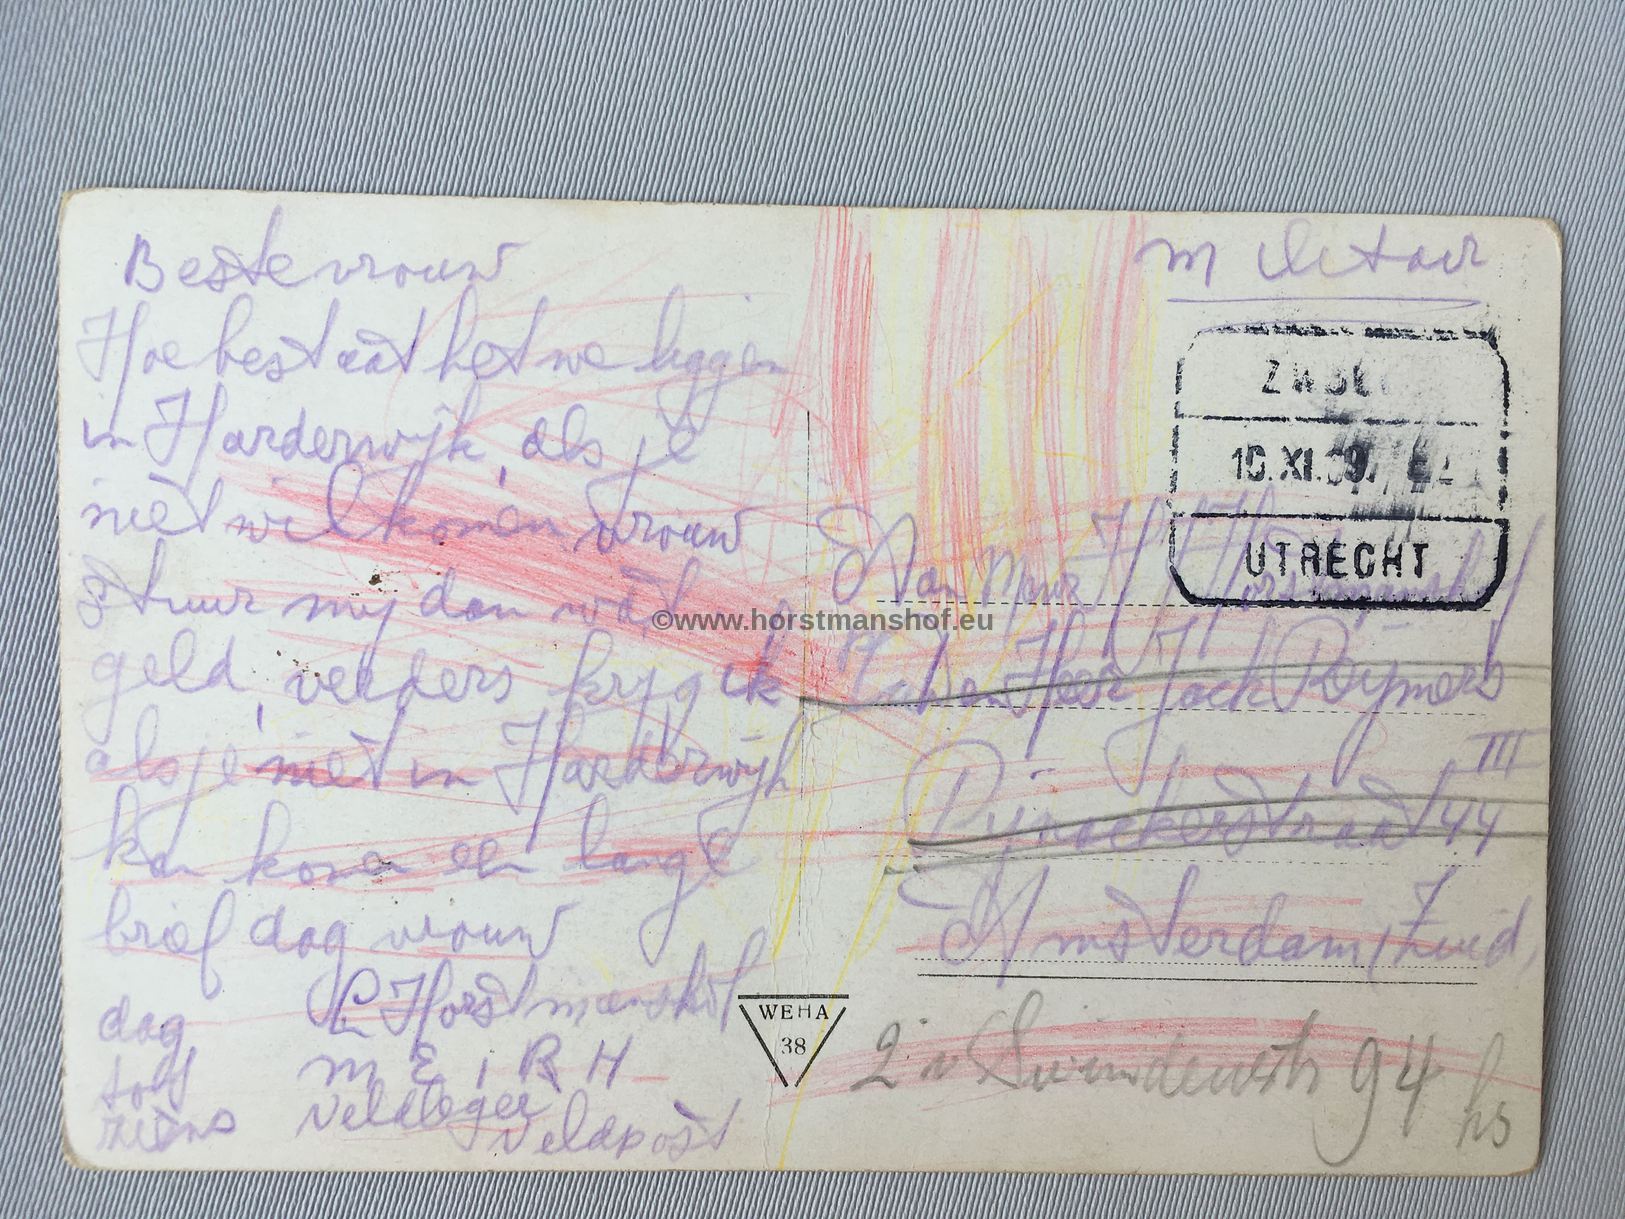 Beste vrouw
Hoe bestaat het we liggen
in Harderwijk, als je
niet wil komen vrouw
stuur mij dan wat
geld, verders krijg ik
als je niet in Harderwijk
kan komen een lange
brief dag vrouw
dag
tot
ziens
L Horstmanshof
M E 1 R H
Veldleger
Veldpost
militair
ZW
10.XI.39.
UTRECHT
Aan Mevr H Horstmanshof
Heer Jack Reymers
III
Pijnackerstraat 44
Amsterdam, Zuid,
2e v Swindenstr 94 hs
WEHA
38
©www.horstmanshof.eu